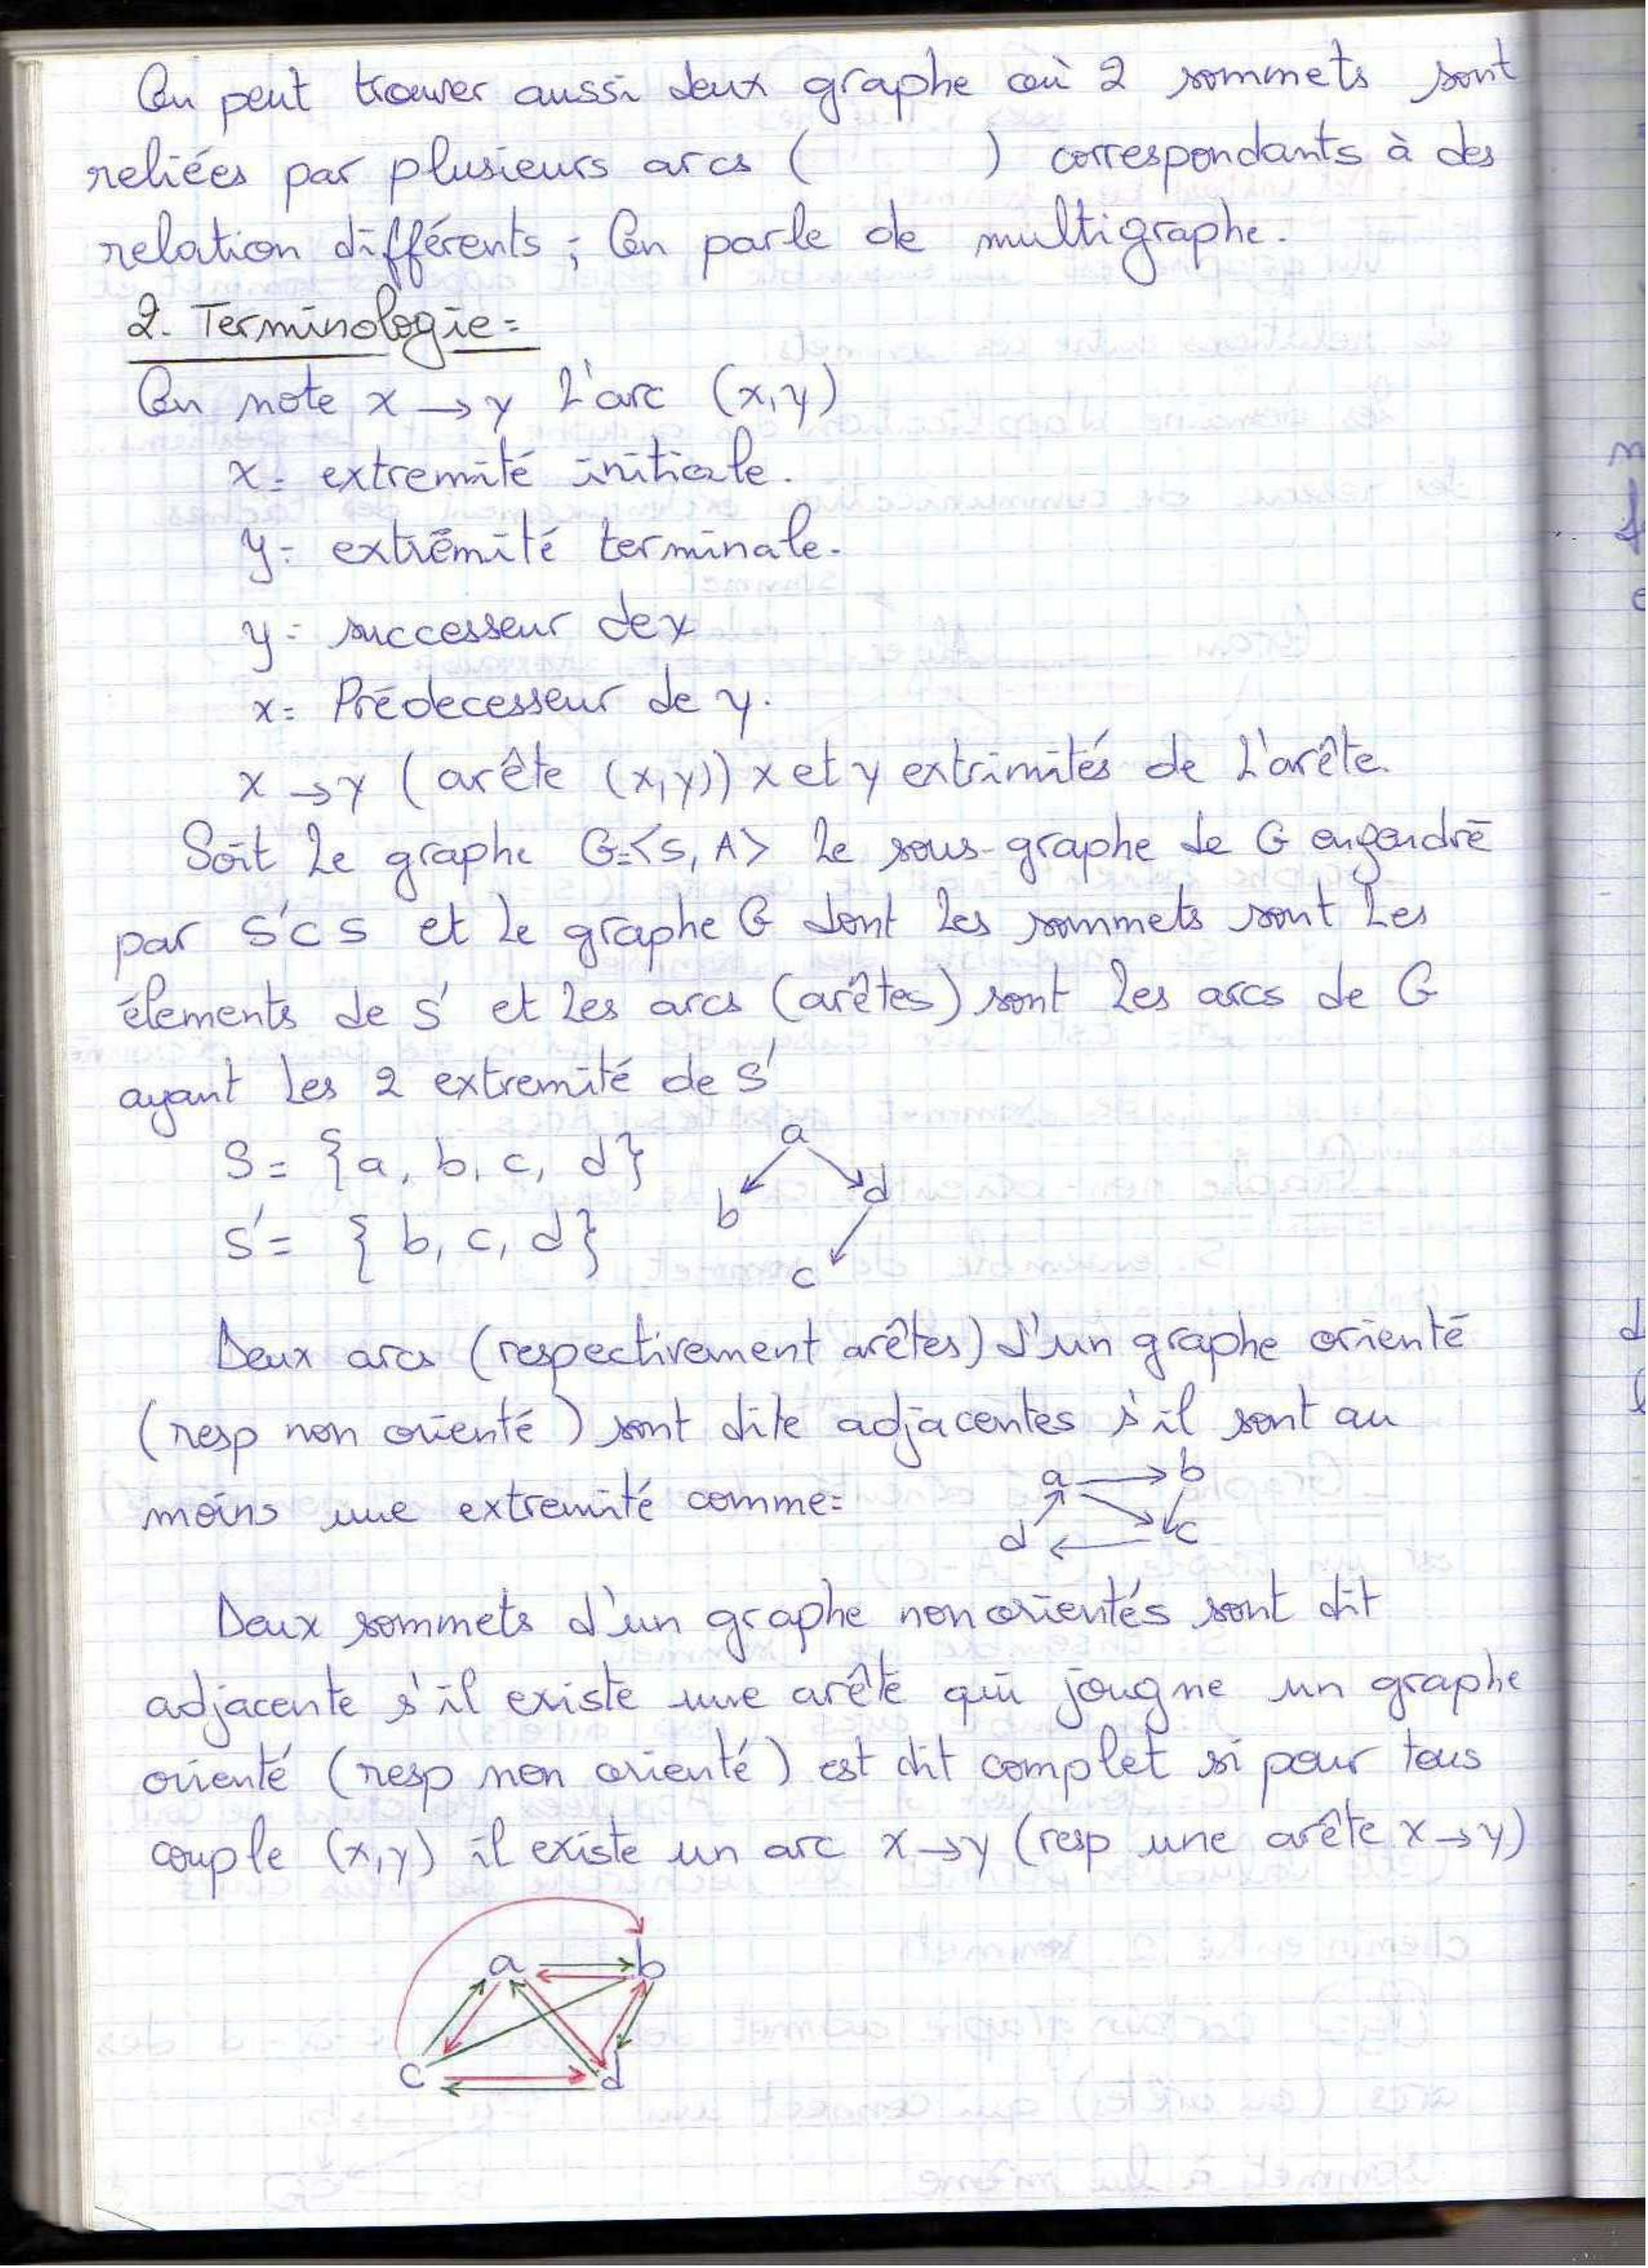 On peut trouver aussi deux graphe où 2 sommets sont
reliées par plusieurs arcs ( ) correspondants à des
relation différents ; On parle de multigraphe.
2. Terminologie :
On note x → y l'arc (x,y)
x : extremité initiale.
y : extrémité terminale.
y : successeur de x
x : Prédecesseur de y.
x → y ( arête (x,y)) x et y extrimités de l'arête.
Soit le graphe G=<S, A> le sous-graphe de G engendré
par S'⊂S et le graphe G dont les sommets sont les
élements de S' et les arcs (arêtes) sont les arcs de G
ayant les 2 extremité de S'
S = {a, b, c, d}
S' = { b, c, d}
a
b
d
c
Deux arcs (respectivement arêtes) d'un graphe orienté
(resp non orienté ) sont dite adjacentes s'il sont au
moins une extremité comme :
a
b
d
c
Deux sommets d'un graphe non orientés sont dit
adjacente s'il existe une arête qui jougne un graphe
orienté (resp non orienté ) est dit complet si pour tous
couple (x,y) il existe un arc x→y (resp une arête x→y)
a
b
c
d